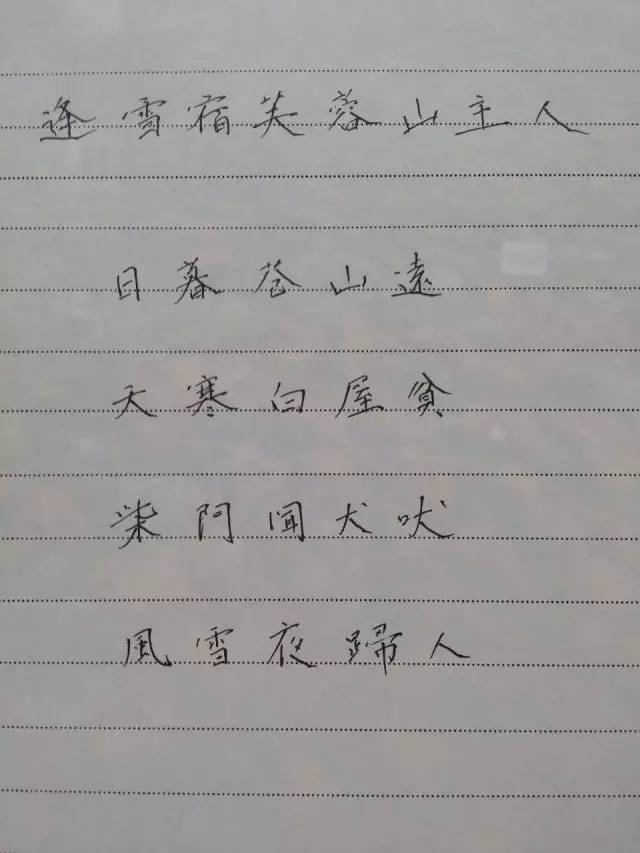 逢雪宿芙蓉山主人
日暮蒼山遠
天寒白屋貧
柴門聞犬吠
風雪夜歸人